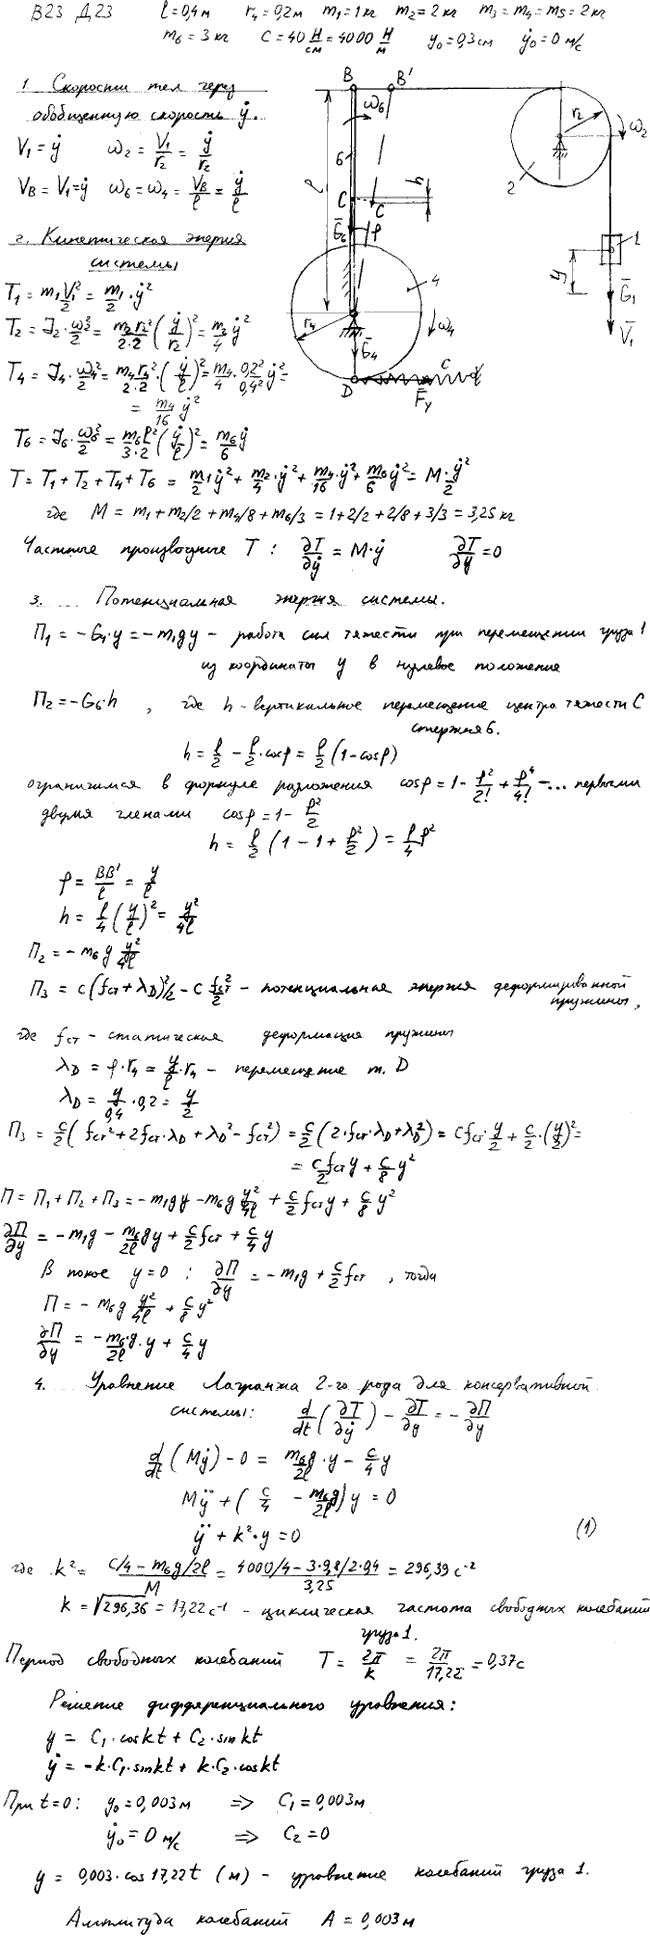 В23 Д23 ℓ=0,4м r₄=0,2м m₁=1кг m₂=2кг m₃=m₄=m₅=2кг
m₆=3кг C=40 Н/см = 4000 Н/м y₀=0,3см ẏ₀=0 м/с
1. Скорости тел через
обобщенную скорость ẏ.
V₁=ẏ ω₂=V₁/r₂=ẏ/r₂
V_B=V₁=ẏ ω₆=ω₄=V_B/ℓ=ẏ/ℓ
2. Кинетическая энергия
системы
T₁=m₁V₁²/2=m₁/2·ẏ²
T₂=J₂·ω₂²/2=m₂r₂²/2·2(ẏ/r₂)²=m₂/4 ẏ²
T₄=J₄·ω₄²/2=m₄r₄²/2·2·(ẏ/ℓ)²=m₄/4·0,2²/0,4² ẏ²=
=m₄/16 ẏ²
T₆=J₆·ω₆²/2=m₆ℓ²/3·2(ẏ/ℓ)²=m₆/6 ẏ
B B' ω₆ 6 ℓ C C h G₆ φ 4 r₄ ω₄ G₄ D C F_у
2 r₂ ω₂ 1 y G₁ V₁
T=T₁+T₂+T₄+T₆=m₁/2 ẏ²+m₂/4·ẏ²+m₄/16·ẏ²+m₆/6 ẏ²=M·ẏ²/2
где M=m₁+m₂/2+m₄/8+m₆/3=1+2/2+2/8+3/3=3,25кг
Частные производные T: ∂T/∂ẏ=M·ẏ ∂T/∂y=0
3. .... Потенциальная энергия системы.
П₁=-G₁·y=-m₁gy - работа сил тяжести при перемещении груза 1
из координаты y в нулевое положение
П₂=-G₆·h, где h - вертикальное перемещение центра тяжести C
стержня 6.
h=ℓ/2-ℓ/2·cosφ=ℓ/2(1-cosφ)
ограничимся в формуле разложения cosφ=1-φ²/2!+φ⁴/4!-... первыми
двумя членами cosφ=1-φ²/2
h=ℓ/2(1-1+φ²/2)=ℓ/4φ²
φ=BB'/ℓ=y/ℓ
h=ℓ/4(y/ℓ)²=y²/4ℓ
П₂=-m₆g y²/4ℓ
П₃=c(fст+λ_D)²/2-c fст²/2 - потенциальная энергия деформированной
пружины,
где fст - статическая деформация пружины
λ_D=φ·r₄=y/ℓ·r₄ - перемещение т. D
λ_D=y/0,4·0,2=y/2
П₃=c/2(fст²+2fст·λ_D+λ_D²-fст²)=c/2(2·fст·λ_D+λ_D²)=cfст·y/2+c/2·(y/2)²=
=c/2 fст y+c/8 y²
П=П₁+П₂+П₃=-m₁gy-m₆g y²/4ℓ+c/2 fст y+c/8 y²
∂П/∂y=-m₁g-m₆g/2ℓ y+c/2 fст+c/4 y
В покое y=0: ∂П/∂y=-m₁g+c/2 fст, тогда
П=-m₆g y²/4ℓ+c/8 y²
∂П/∂y=-m₆·g/2ℓ·y+c/4 y
4. ... Уравнение Лагранжа 2-го рода для консервативной
системы: d/dt(∂T/∂ẏ)-∂T/∂y=-∂П/∂y
d/dt(Mẏ)-0=m₆g/2ℓ·y-c/4 y
Mÿ+(c/4-m₆g/2ℓ)y=0
ÿ+k²·y=0 (1)
где k²=(c/4-m₆g/2ℓ)/M=(4000/4-3·9,8/2·0,4)/3,25=296,39 с⁻²
k=√296,36=17,22с⁻¹ - циклическая частота свободных колебаний
груза 1.
Период свободных колебаний T=2π/k=2π/17,22=0,37с
Решение дифференциального уровнения:
y=C₁·coskt+C₂·sinkt
ẏ=-k·C₁·sinkt+k·C₂·coskt
При t=0: y₀=0,003м => C₁=0,003м
ẏ₀=0 м/с => C₂=0
y=0,003·cos17,22t (м) - уровнение колебаний груза 1.
Амплитуда колебаний A=0,003м